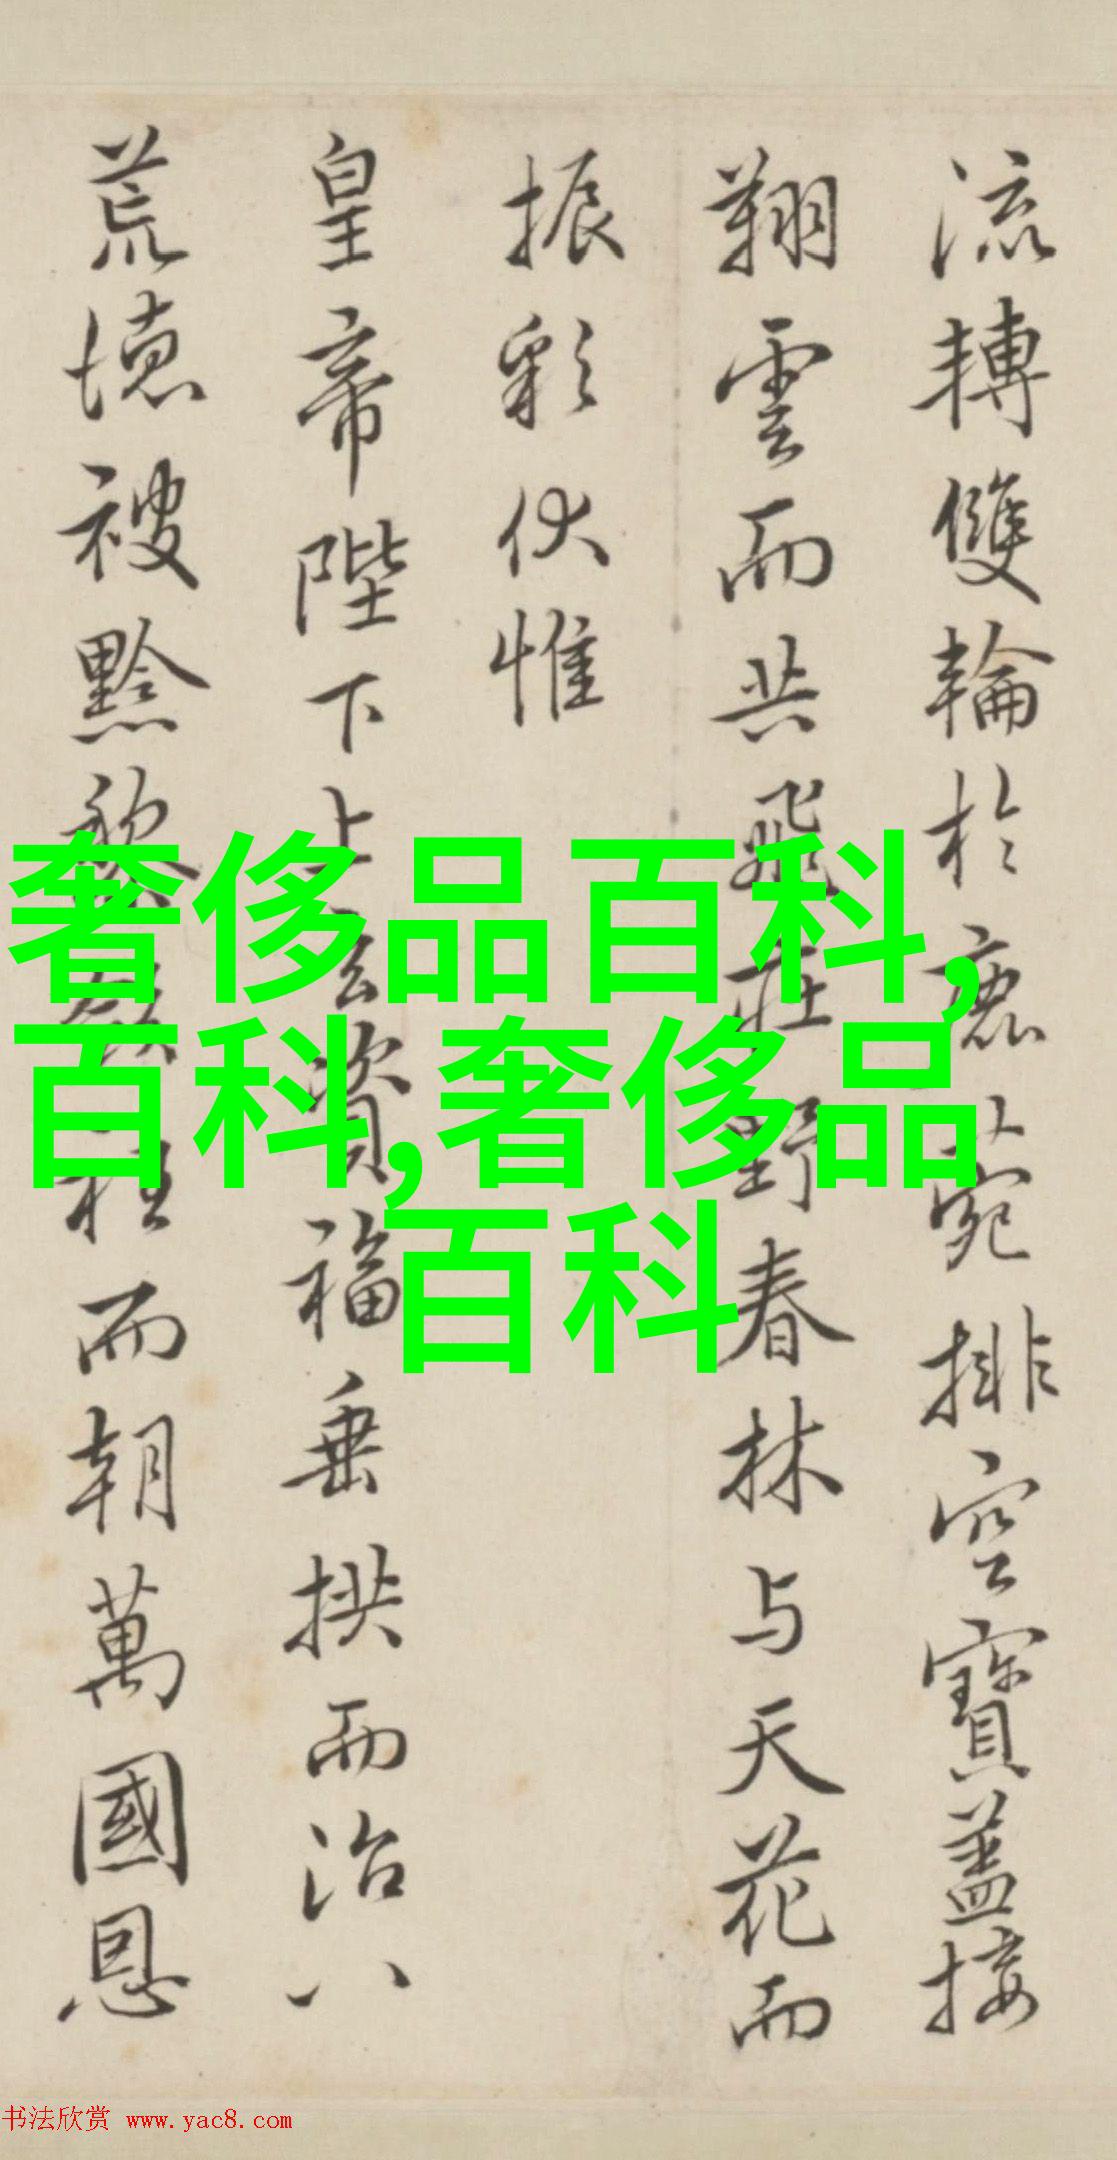 流轉雙輪於鹿菀排空寶蓋接
翔雲而共飛莊野春林与天花而
振彩伏惟
皇帝陛下上玄資福垂拱而治八
荒德被黔黎斂衽而朝萬國恩
奢侈品百科,
百科,奢侈品
百科
书法欣赏 www.yac8.com